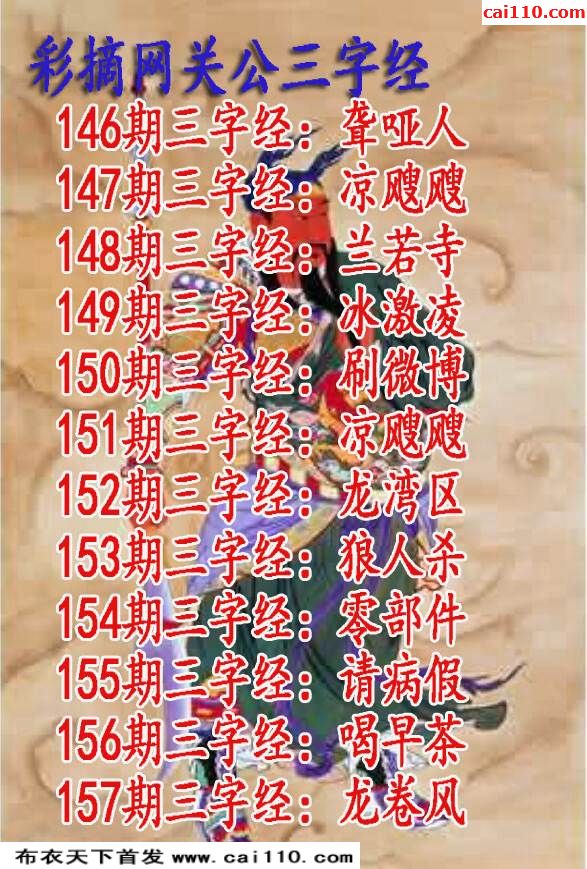 cai110.com
彩摘网关公三字经
146期三字经：聋哑人
147期三字经：凉飕飕
148期三字经：兰若寺
149期三字经：冰激凌
150期三字经：刷微博
151期三字经：凉飕飕
152期三字经：龙湾区
153期三字经：狼人杀
154期三字经：零部件
155期三字经：请病假
156期三字经：喝早茶
157期三字经：龙卷风
布衣天下首发 www.cai110.com